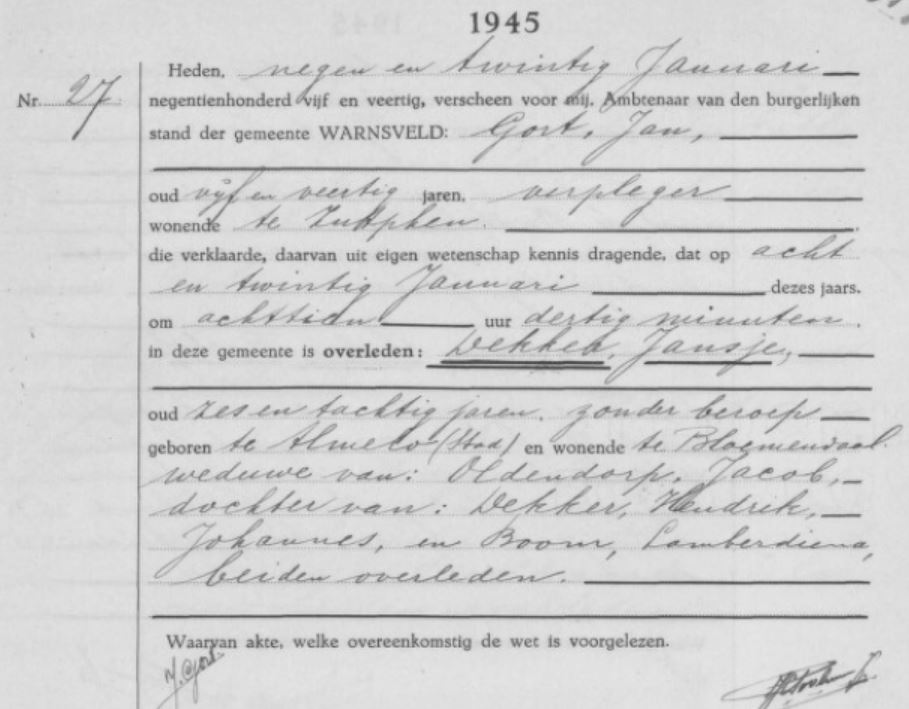 1945
Nr. 27
Heden, negen en twintig Januari
negentienhonderd vijf en veertig, verscheen voor mij, Ambtenaar van den burgerlijken
stand der gemeente WARNSVELD: Gort, Jan,
oud vijf en veertig jaren, verpleger
wonende te Zutphen.
die verklaarde, daarvan uit eigen wetenschap kennis dragende, dat op acht
en twintig Januari dezes jaars.
om achttien uur dertig minuten.
in deze gemeente is overleden: Dekker, Jansje,
oud zes en tachtig jaren, zonder beroep
geboren te Almelo (Stad) en wonende te Bloemendaal.
weduwe van: Oldendorp, Jacob,
dochter van: Dekker, Hendrik,
Johannes, en Boom, Lamberdiena,
beiden overleden.
Waarvan akte, welke overeenkomstig de wet is voorgelezen.
J. Gort.